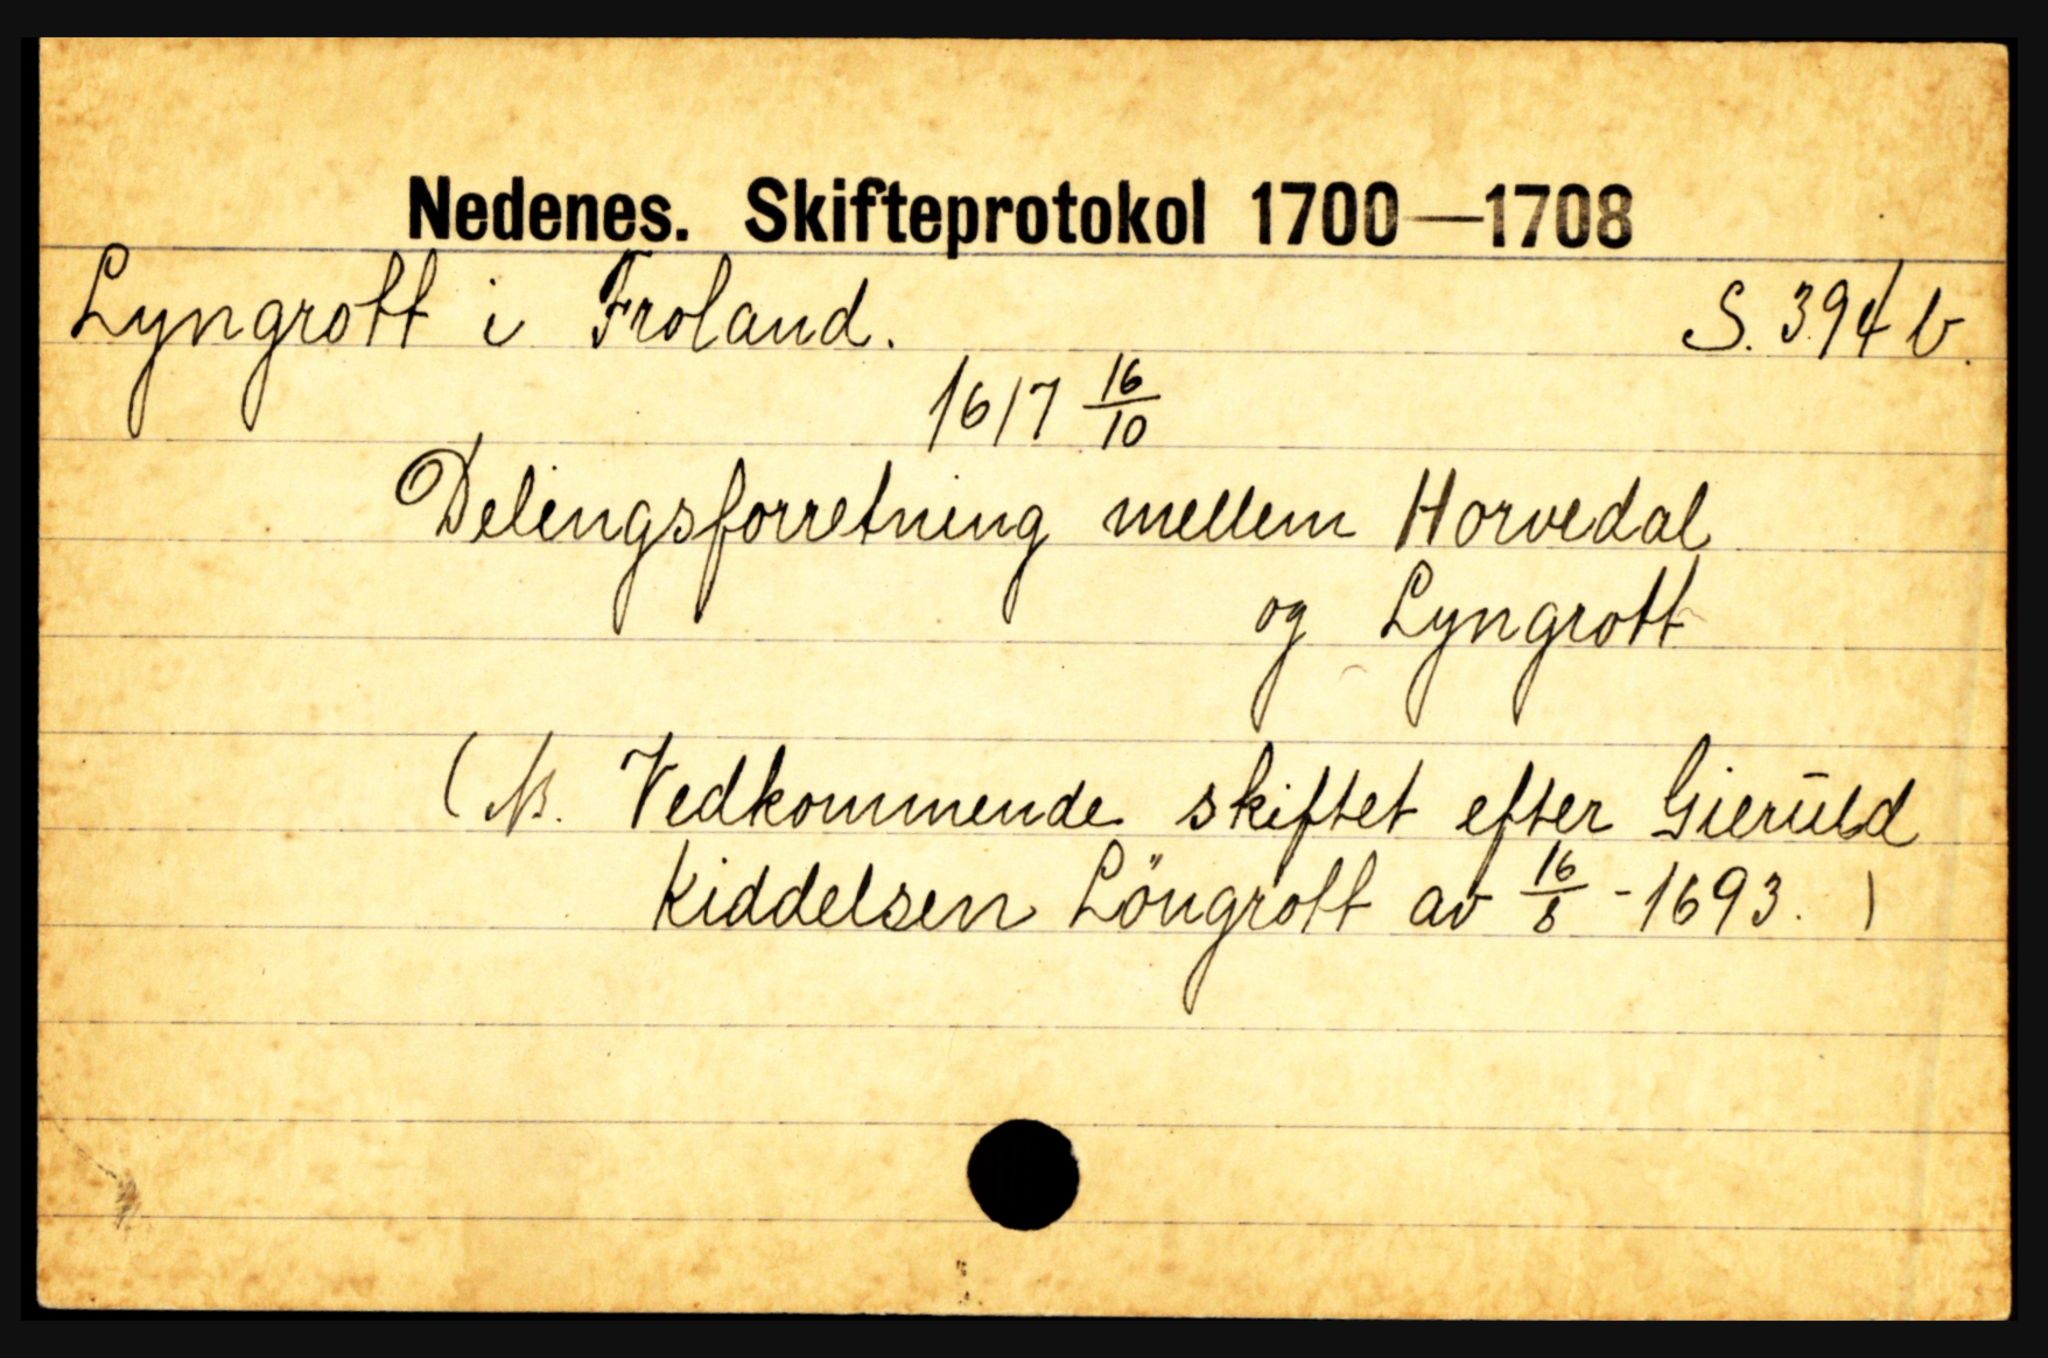 Nedenes. Skifteprotokol 1700—1708
Lyngrott i Froland. S. 394 b.
1617 16/10
Delingsforretning mellem Horvedal
og Lyngrott
(NB. Vedkommende skiftet efter Gieruld
Kiddelsen Löngrott av 16/8 - 1693. )